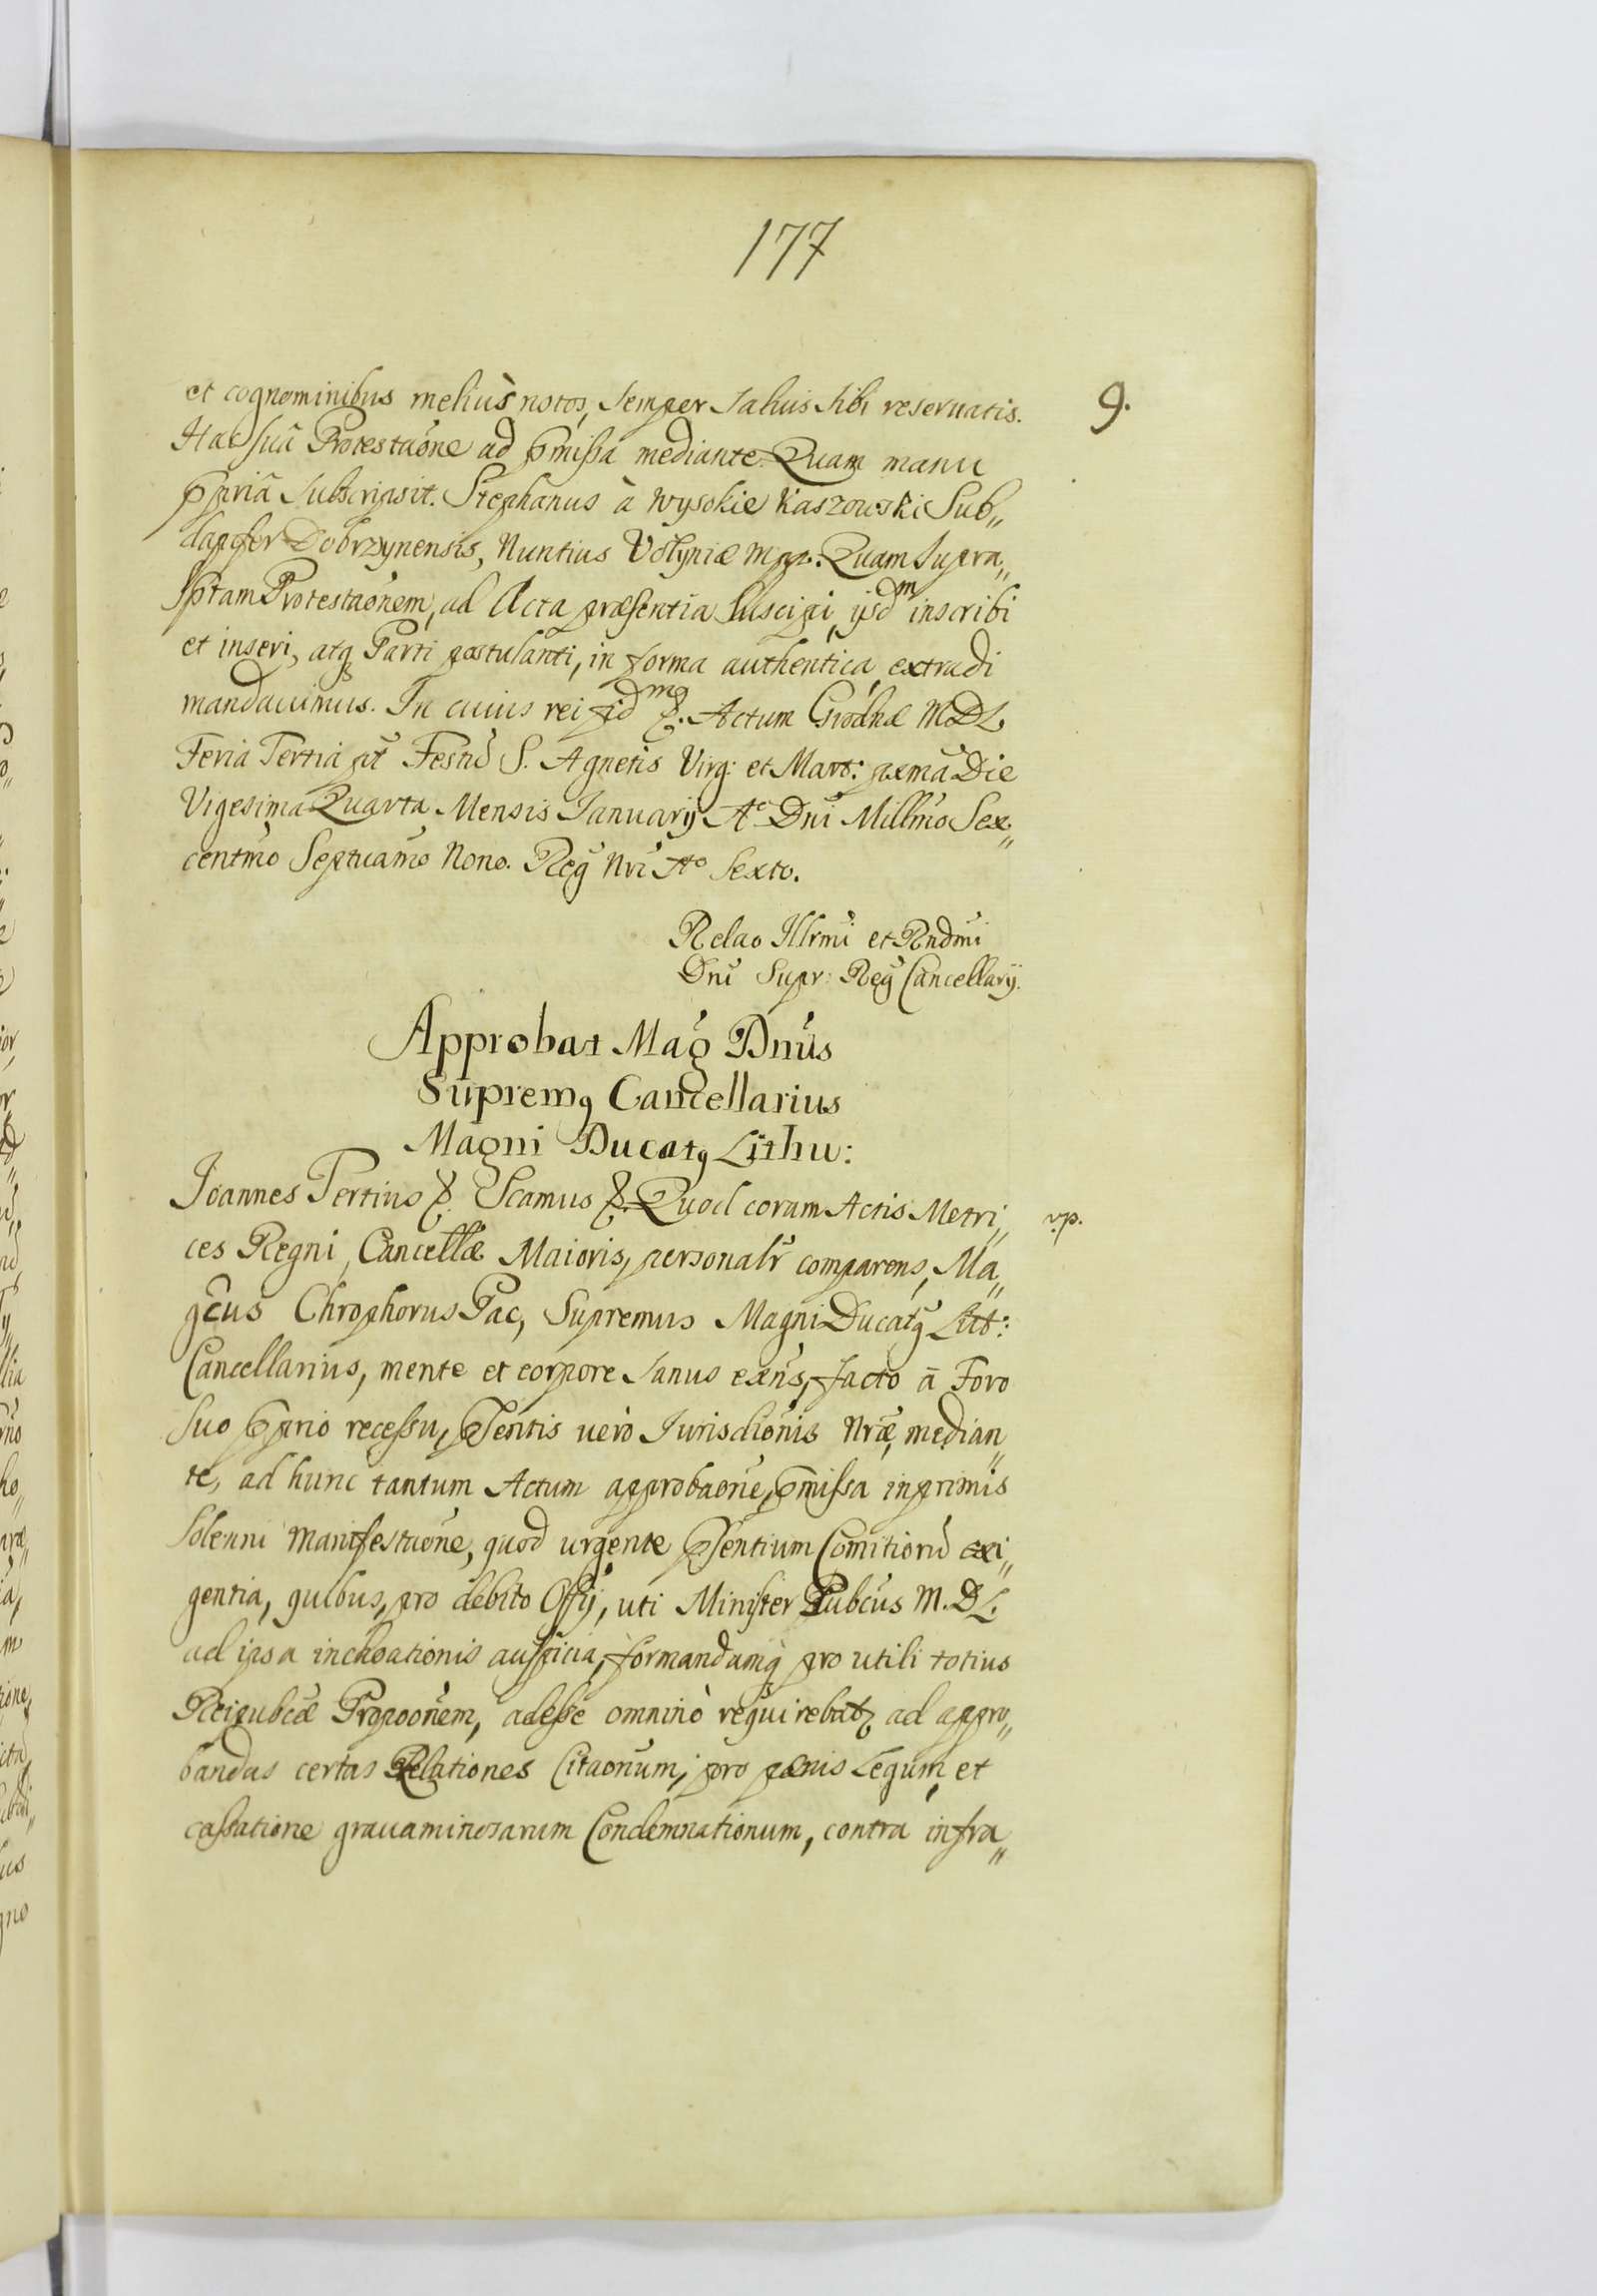 177
9.
et cognominibus meliùs notos, semper saluis sibi reseruatis.
Hac suâ Protestaõne ad p̃missa mediante. Quam manu
p̃priâ subscripsit. Stephanus à Wysokie Kaszowski Sub„
dapifer Dobrzynensis, Nuntius Volyniæ mpp. Quam supra„
sp̃tam Protestaõnem, ad Acta præsentia suscipi, ijsdm inscribi
et inseri, atq Parti postulanti, in forma authentica extradi
mandauimus. In cuius rei fidm &. Actum Grodnæ M D L
Feria Tertia p̃t Festũ S. Agnetis Virg: et Mart: pxmâ Die
Vigesima Quarta Mensis Januarij Ao Dñi Millm̃o Sex„
centm̃o Septuam̃o Nono. Reg̃ Nr̃i Ao Sexto.
Relao Illrm̃i et Rndm̃i
Dñi Supr: Reg̃ Cancellarij.
Approbat Mag̃ Dñus
Supremq Cancellarius
Magni Ducatq Lithu:
Joannes Tertius &. Scamus &. Quod coram Actis Metri„
v.p.
ces Regni, Cancellæ Maioris, personalr̃ comparens, Ma„
gc̃us Chrophorus Pac, Supremus Magni Ducatq Litt:
Cancellarius, mente et corpore sanus exñs, facto à Foro
suo p̃prio recessu, p̃sentis uerò Jurisdiõnis Nræ, median„
te, ad hunc tantum Actum approbaõne, p̃missa inprimis
solenni manifestaõne, quod urgente p̃sentium Comitiorũ exi„
gentia, quibus, pro debito Offij, uti Minister Pubcus M. D L.
ad ipsa inchoationis auspicia, formandamq pro utili totius
Reipubcæ Propoõnem, adesse omninò requirebat, ad appro„
bandas certas Relationes Citaõnum, pro pœnis Legum, et
cassatione grauaminosarum Condemnationum, contra infra„